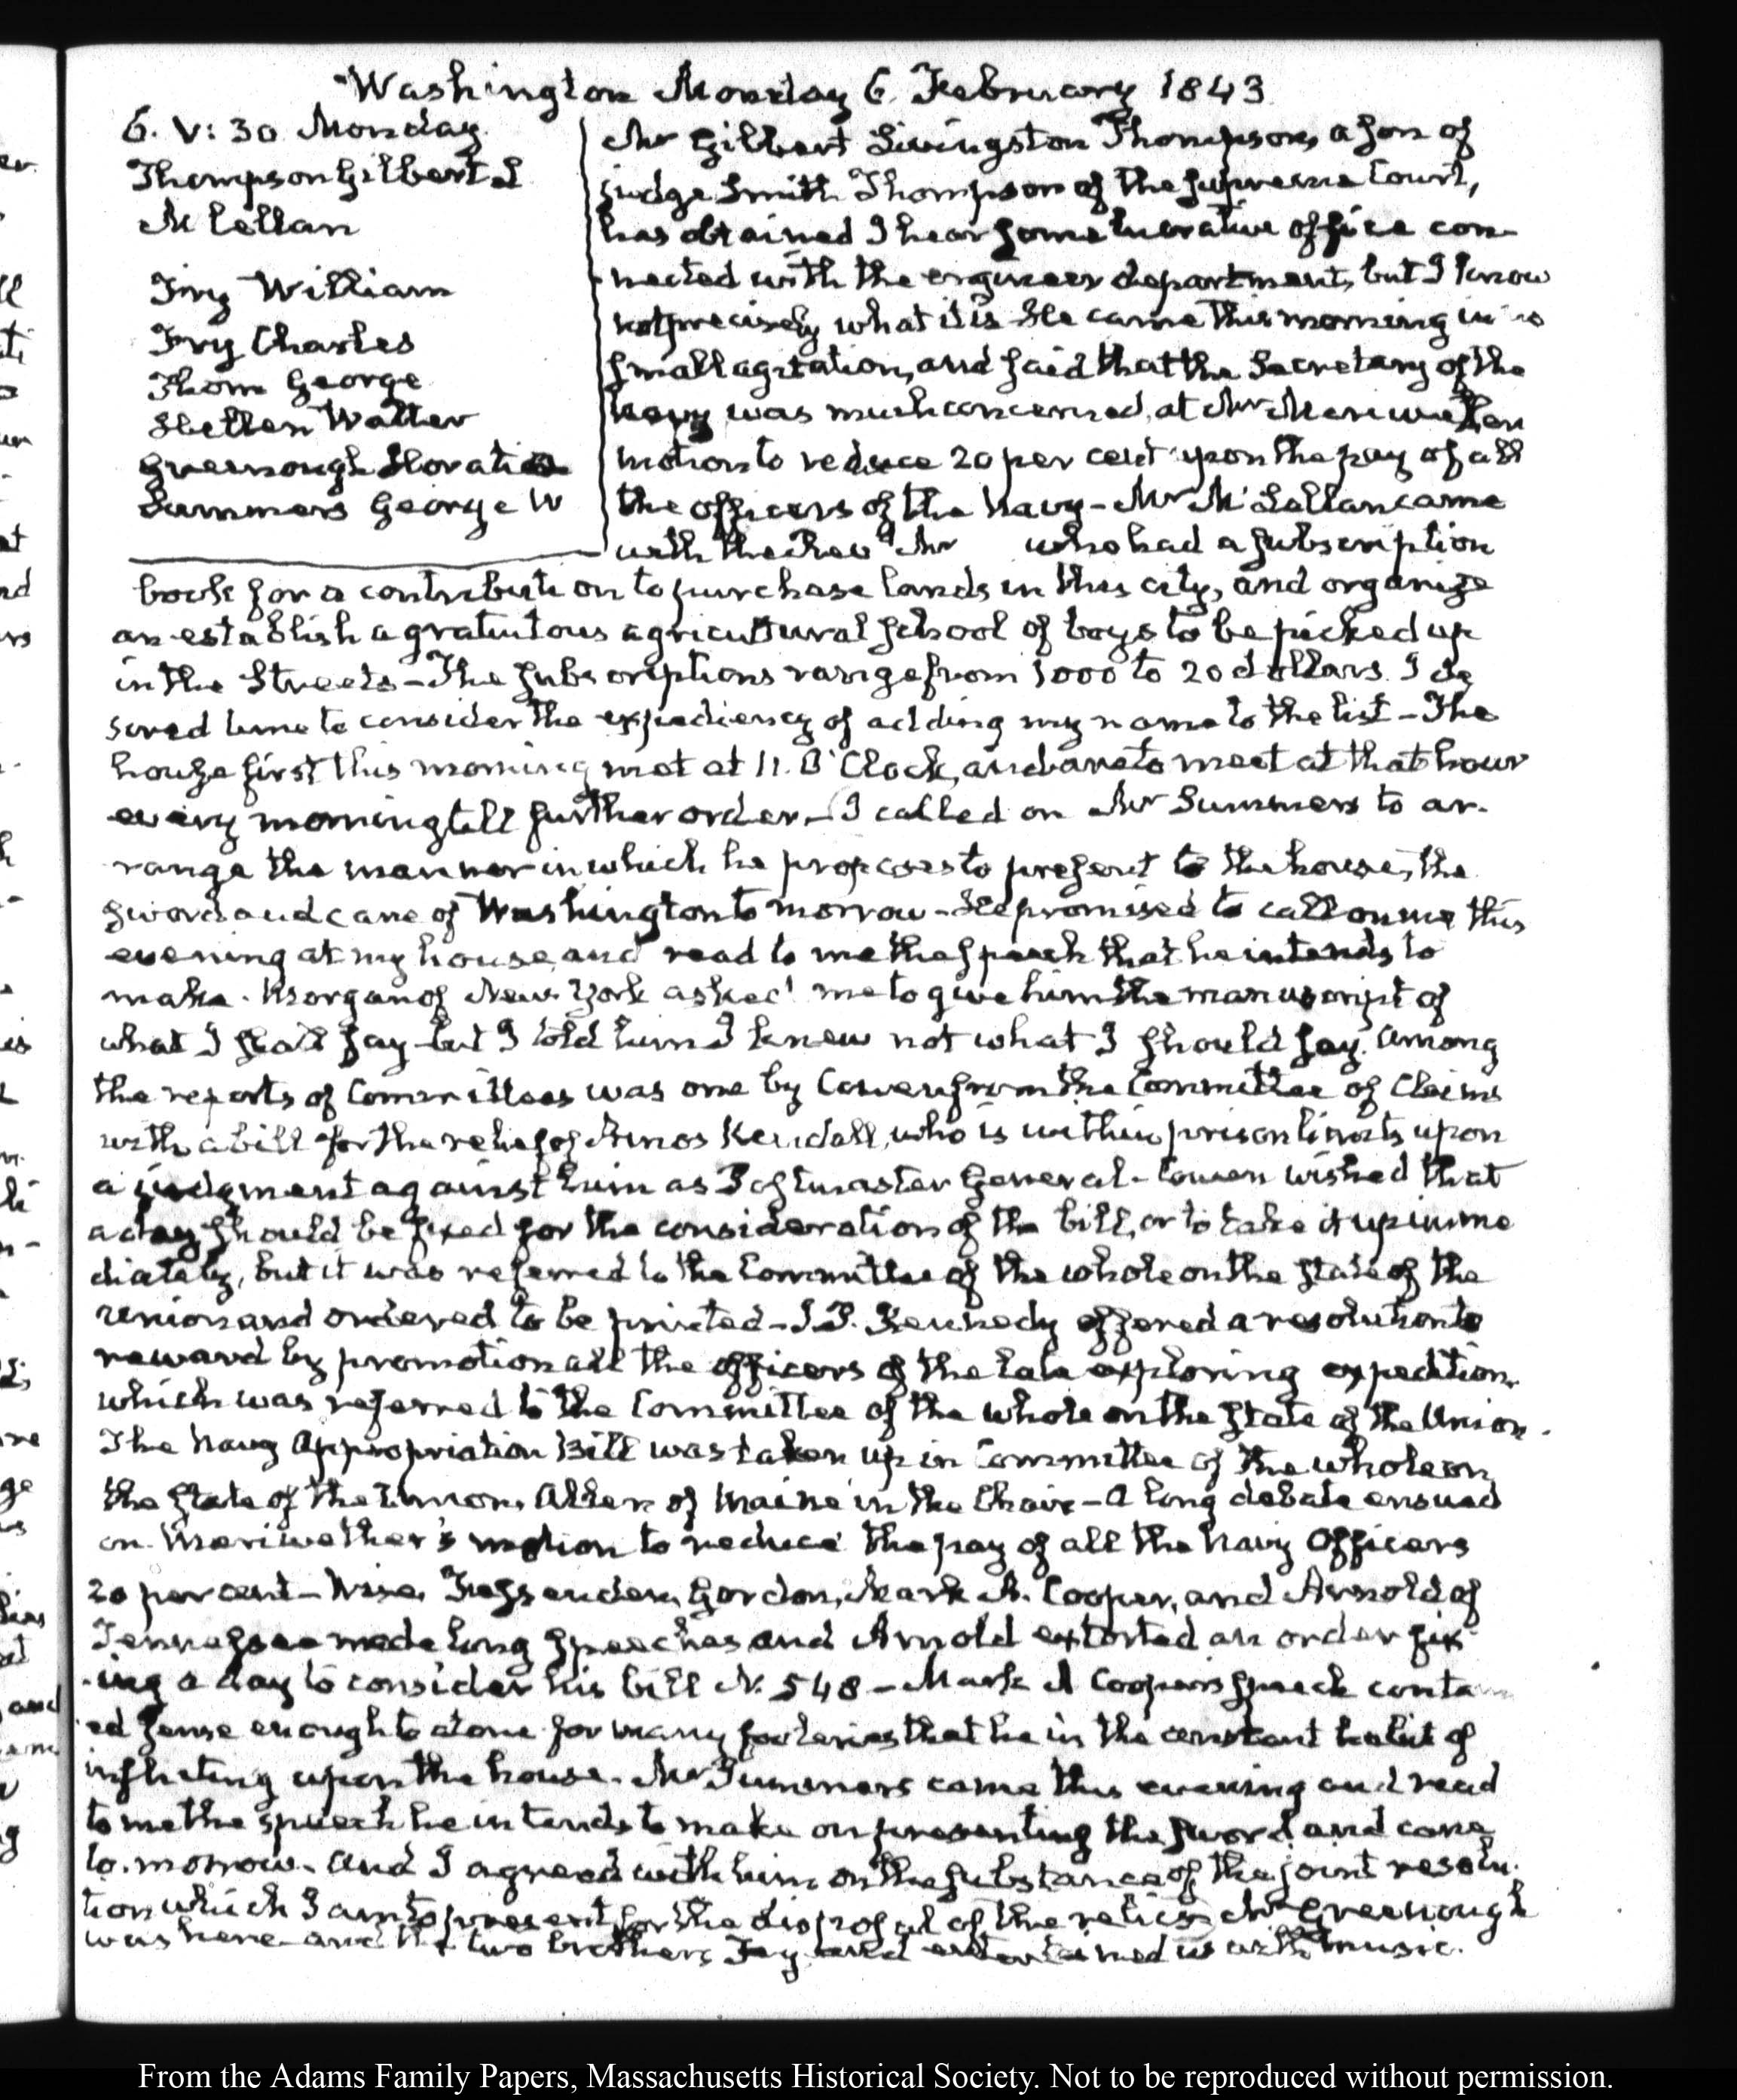 Washington Monday 6. February 1843
6. V: 30. Monday.
Thompson Gilbert L
McLellan
Fry William
Fry Charles
Thom George
Hellen Walter
Greenough Horatio
Summers George W
Mr Gilbert Livingston Thompson, a son of
judge Smith Thompson of the supreme Court,
has obtained I hear some lucrative office con-
nected with the engineer department, but I know
not precisely what it is. He came this morning in no
small agitation, and said that the Secretary of the
Navy was much concerned, at Mr Meriwether
motion to reduce 20 per cent upon the pay of all
the officers of the Navy - Mr McLellan came
with the Revd Mr who had a subscription
book for a contribution to purchase lands in this city, and organize
an establish a gratuitous agricultural school of boys to be picked up
in the Streets - The subscriptions range from 1000 to 20 dollars. I de
sired time to consider the expediency of adding my name to the list - The
house first this morning met at 11. O'Clock, and are to meet at that hour
every morning till further order. - I called on Mr Summers to ar-
range the manner in which he proposes to present to the house, the
sword and cane of Washington to morrow - He promised to call on me this
evening at my house, and read to me the speech that he intends to
make. Morgan of New York asked me to give him the manuscript of
what I shall say but I told him I knew not what I should say. Among
the reports of Committees was one by Cowen from the Committee of Claims
with a bill for the relief of Amos Kendall, who is within prison limits upon
a judgment against him as Postmaster General - Cowen wished that
a day should be fixed for the consideration of the bill, or to take it up imme
diately, but it was referred to the Committee of the whole on the state of the
Union and ordered to be printed - J. P. Kennedy offered a resolution to
reward by promotion all the officers of the late exploring expedition,
which was referred to the Committee of the whole on the state of the Union.
The Navy Appropriation Bill was taken up in Committee of the whole on
the state of the Union, Allen of Maine in the Chair - A long debate ensued
on Meriwether's motion to reduce the pay of all the Navy Officers
20 per cent - Wise, Fessenden, Gordon, Mark A. Cooper, and Arnold of
Tennessee made long speeches and Arnold extorted an order fix-
-ing a day to consider his bill N. 548 - Mark A Cooper's speech contain
ed sense enough to atone for many fooleries that he is in the constant habit of
inflicting upon the house. Mr Summers came this evening and read
to me the speech he intends to make on presenting the sword and cane
to-morrow. and I agreed with him on the substance of the joint resolu-
tion which I am to present, for the disposal of the relics Mr Greenough
was here and the two brothers Fry and entertained us with music.
From the Adams Family Papers, Massachusetts Historical Society. Not to be reproduced without permission.